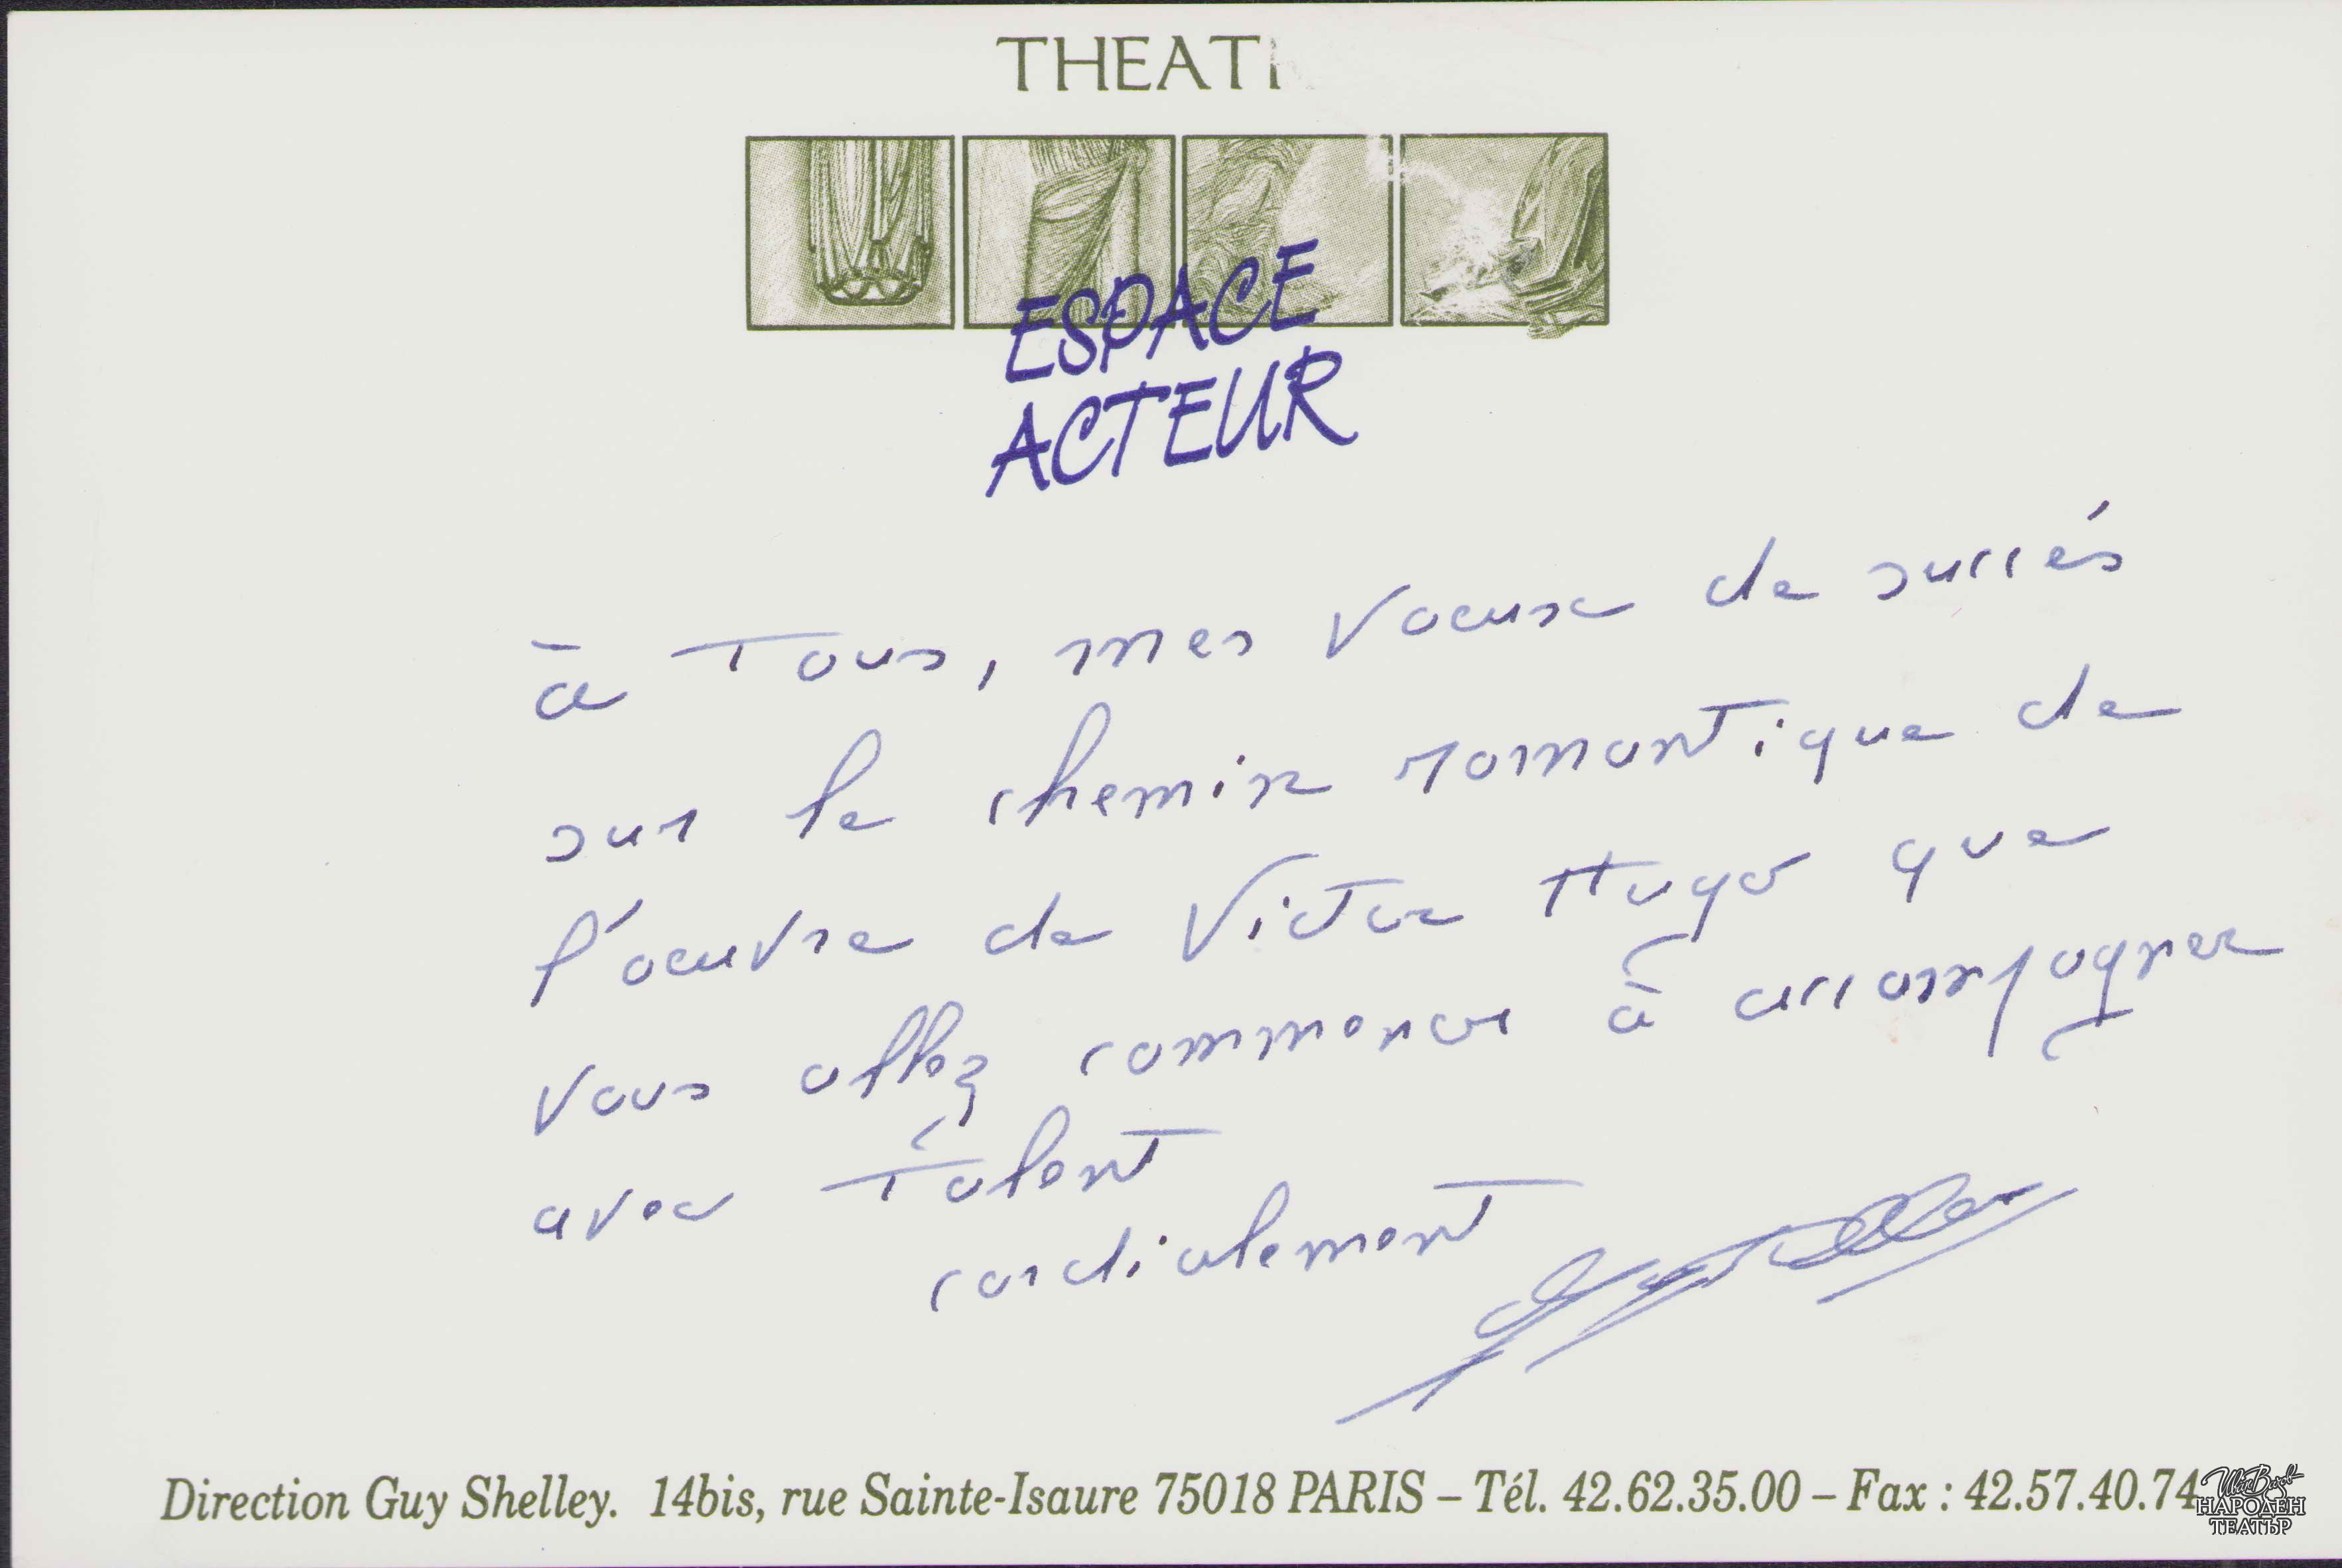 THEATR
ESPACE
ACTEUR
à Tous, mes voeux de succés
sur le chemin romantique de
l'oeuvre de Victor Hugo que
vous allez commencer à accompagner
avec Talent
cordialement
Direction Guy Shelley. 14bis, rue Sainte-Isaure 75018 PARIS – Tél. 42.62.35.00 – Fax : 42.57.40.74
Иван Вазов
НАРОДЕН
ТЕАТЪР